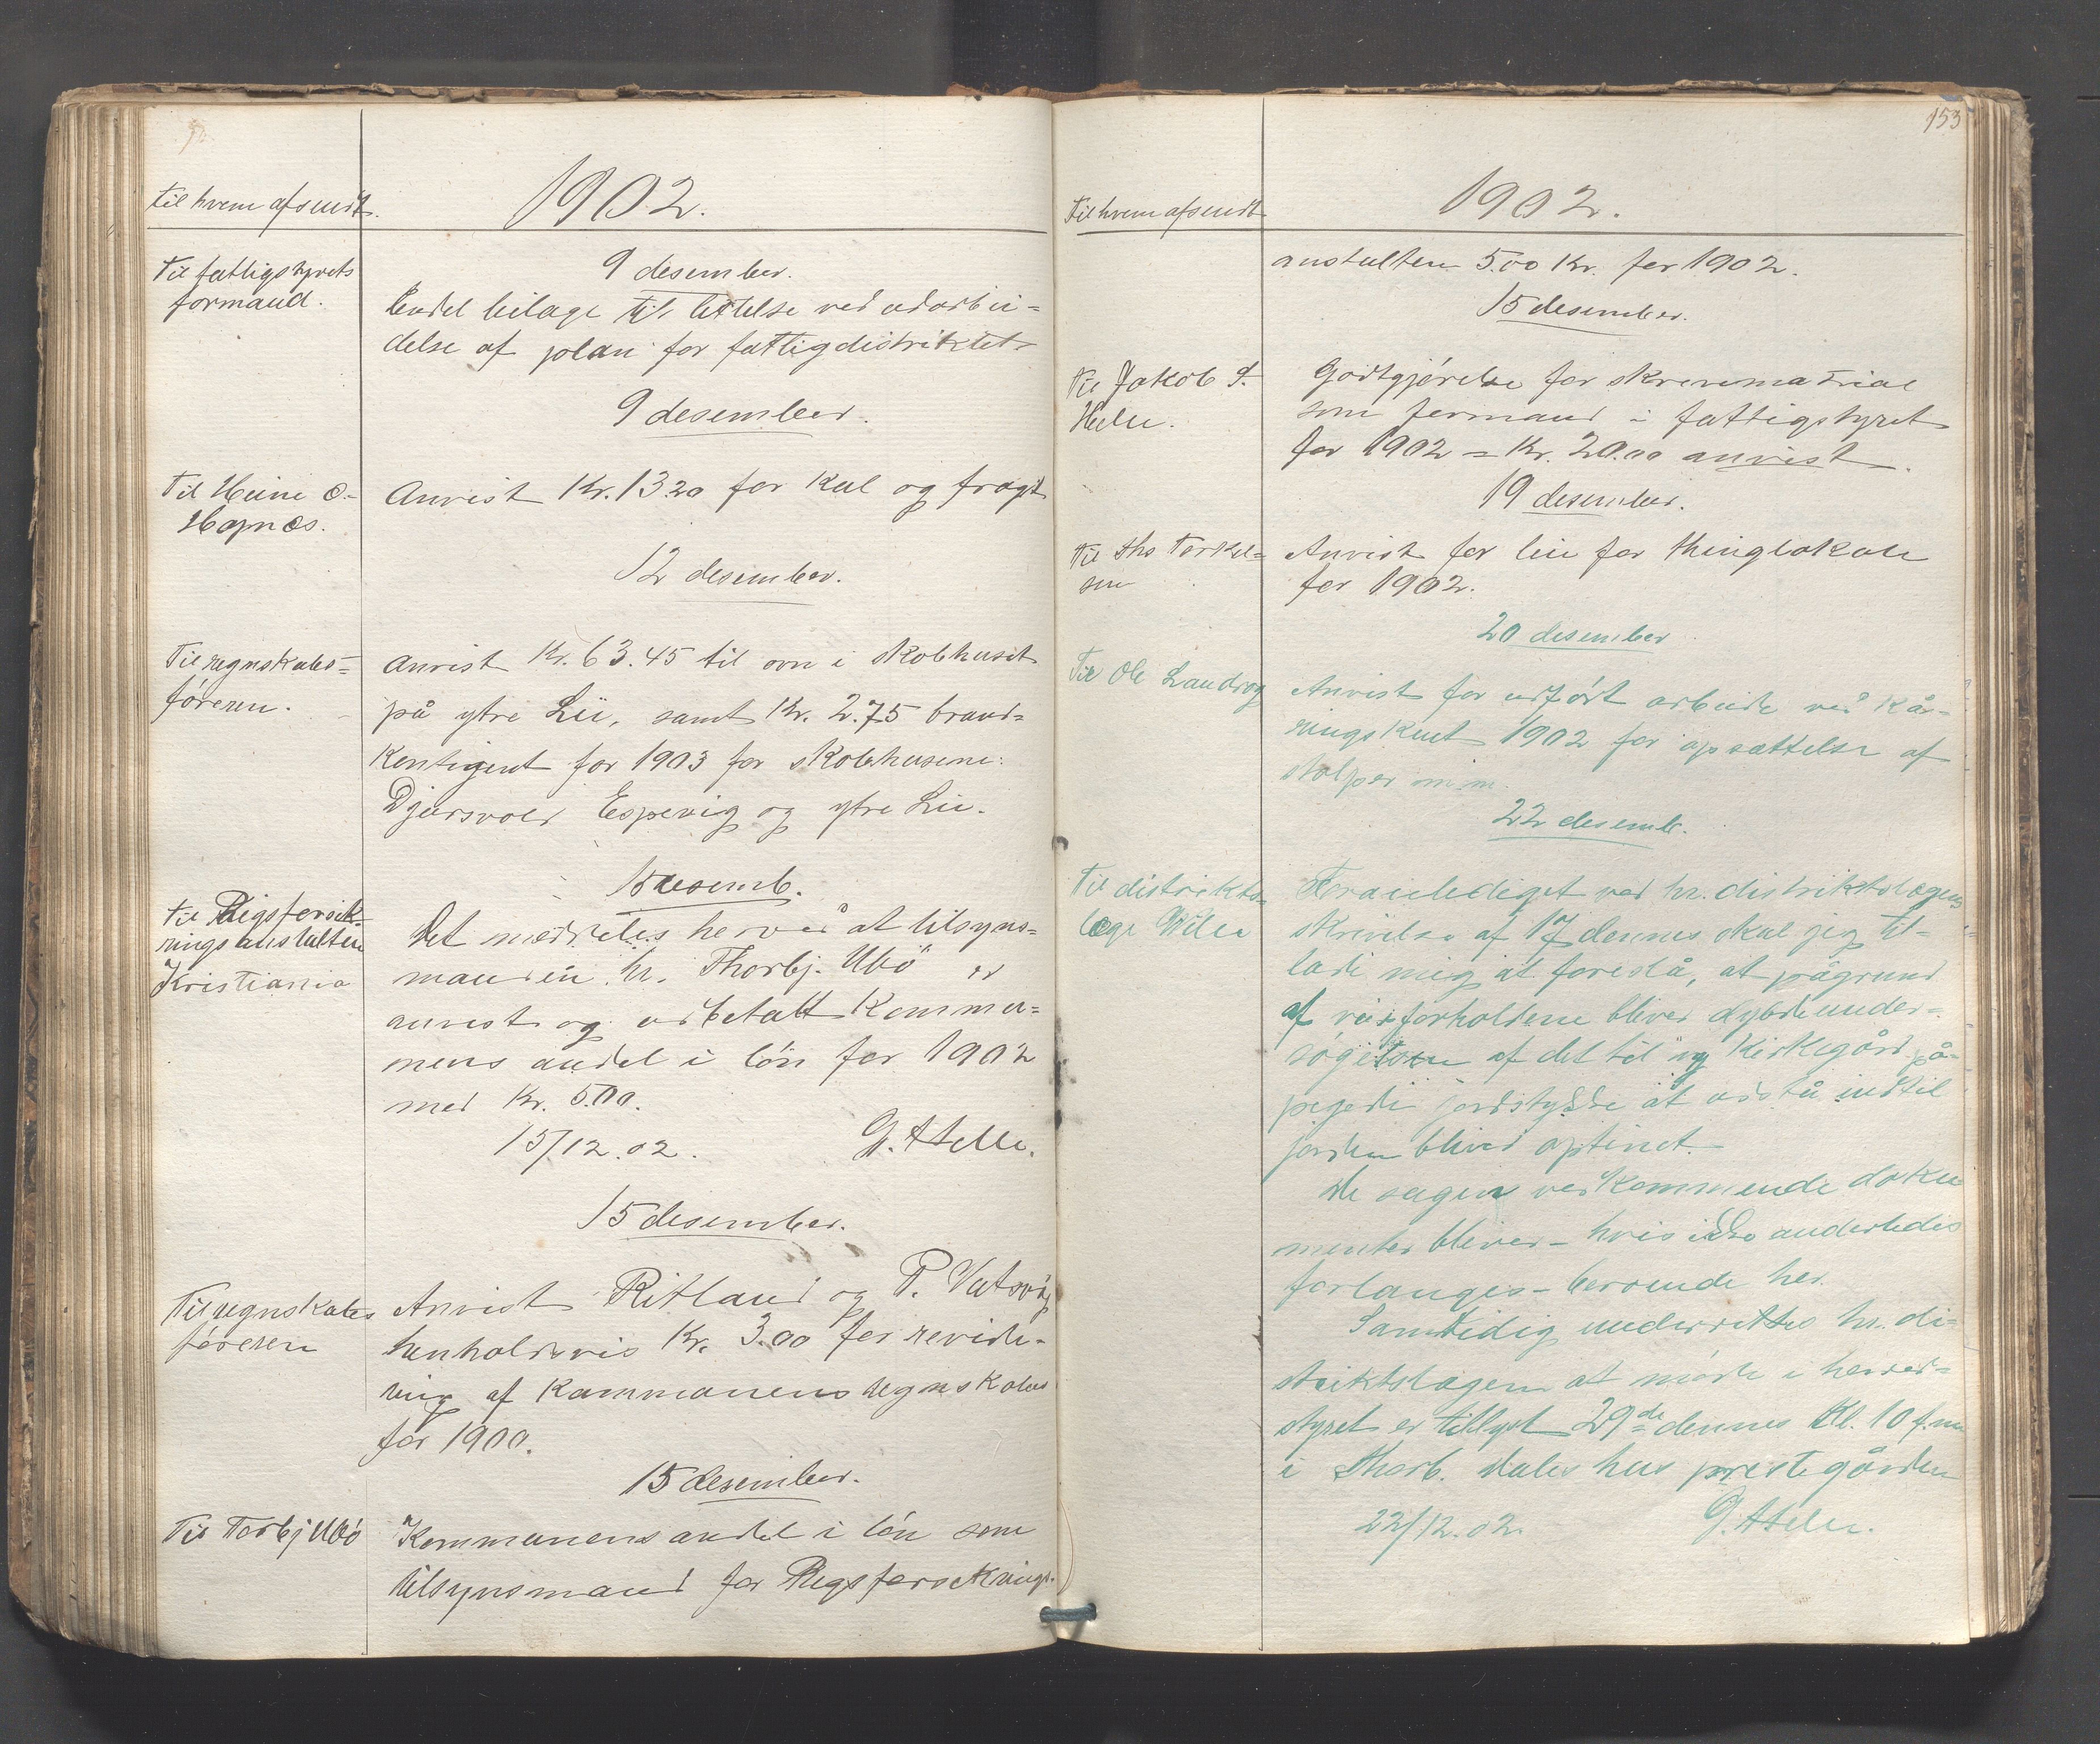 til hvem afsendt.
1902.
Til fattigstyrets
formand.
9 desember.
Endel bilage til lettelse ved udarbei=
delse af plan for fattigdistriktet
9 desember.
Til Heine O.
Hapnes.
Anvist Kr. 13.20 for kul og fragt
12 desember.
Til regnskabs=
føreren.
Anvist Kr. 63.45 til ovn i skolehuset
på ytre Lii, samt Kr. 2.75 brand=
kontigent for 1903 for skolehusene:
Djursvold Espevig og ytre Lii.
15 desemb.
Til Rigsforsik=
ringsanstalten
Kristiania
Det meddeles herved at tilsyns=
manden hr. Thorbj. Ubø er
anvist og udbetalt Kommu=
nens andel i løn for 1902
med Kr. 5.00.
15/12.02.
15 desember.
Til regnskabs
føreren
Anvist Ritland og P. Vatsvåg
henholdsvis Kr. 3.00 for revide=
ring af Kommunens regnskaber
for 1900.
15 desember.
Til Torbj Ubø
Kommunens andel i løn som
tilsynsmand for Rigsforsikrings.
153
Til hvem afsendt
1902.
anstalten 5.00 Kr. for 1902.
15 desember.
Til Jakob
Godtgjørelse for skrivematrial
som formand i fattigstyret
for 1902 = Kr. 20.00 anvist.
19 desember.
Til Ths Torkel=
sen
Anvist for leie for thinglokale
for 1902.
20 desember
Til Ole Landrog
Anvist for udført arbeide ved Kå=
ringskuet 1902 for opsættelse af
stolper m.m.
22 desemb.
Til distrikts=
læge
Foranlediget ved hr. distriktslægens
skrivelse af 17 dennes skal jeg til=
lade mig at foreslå, at pågrund
af veirforholdene bliver dybdeunder=
søgelsen af det til ny Kirkegård på=
pegede jordstykke at udstå indtil
jorden bliver optinet.
De sagen vedkommende doku
menter bliver - hvis ikke anderledes
forlanges - beroende her.
Samtidig underrettes hr. di=
striktslægen at møde i herreds=
styret er tillyst 29de dennes kl. 10 f.m.
i Thorb. Dales hus prestegården
22/12.02.